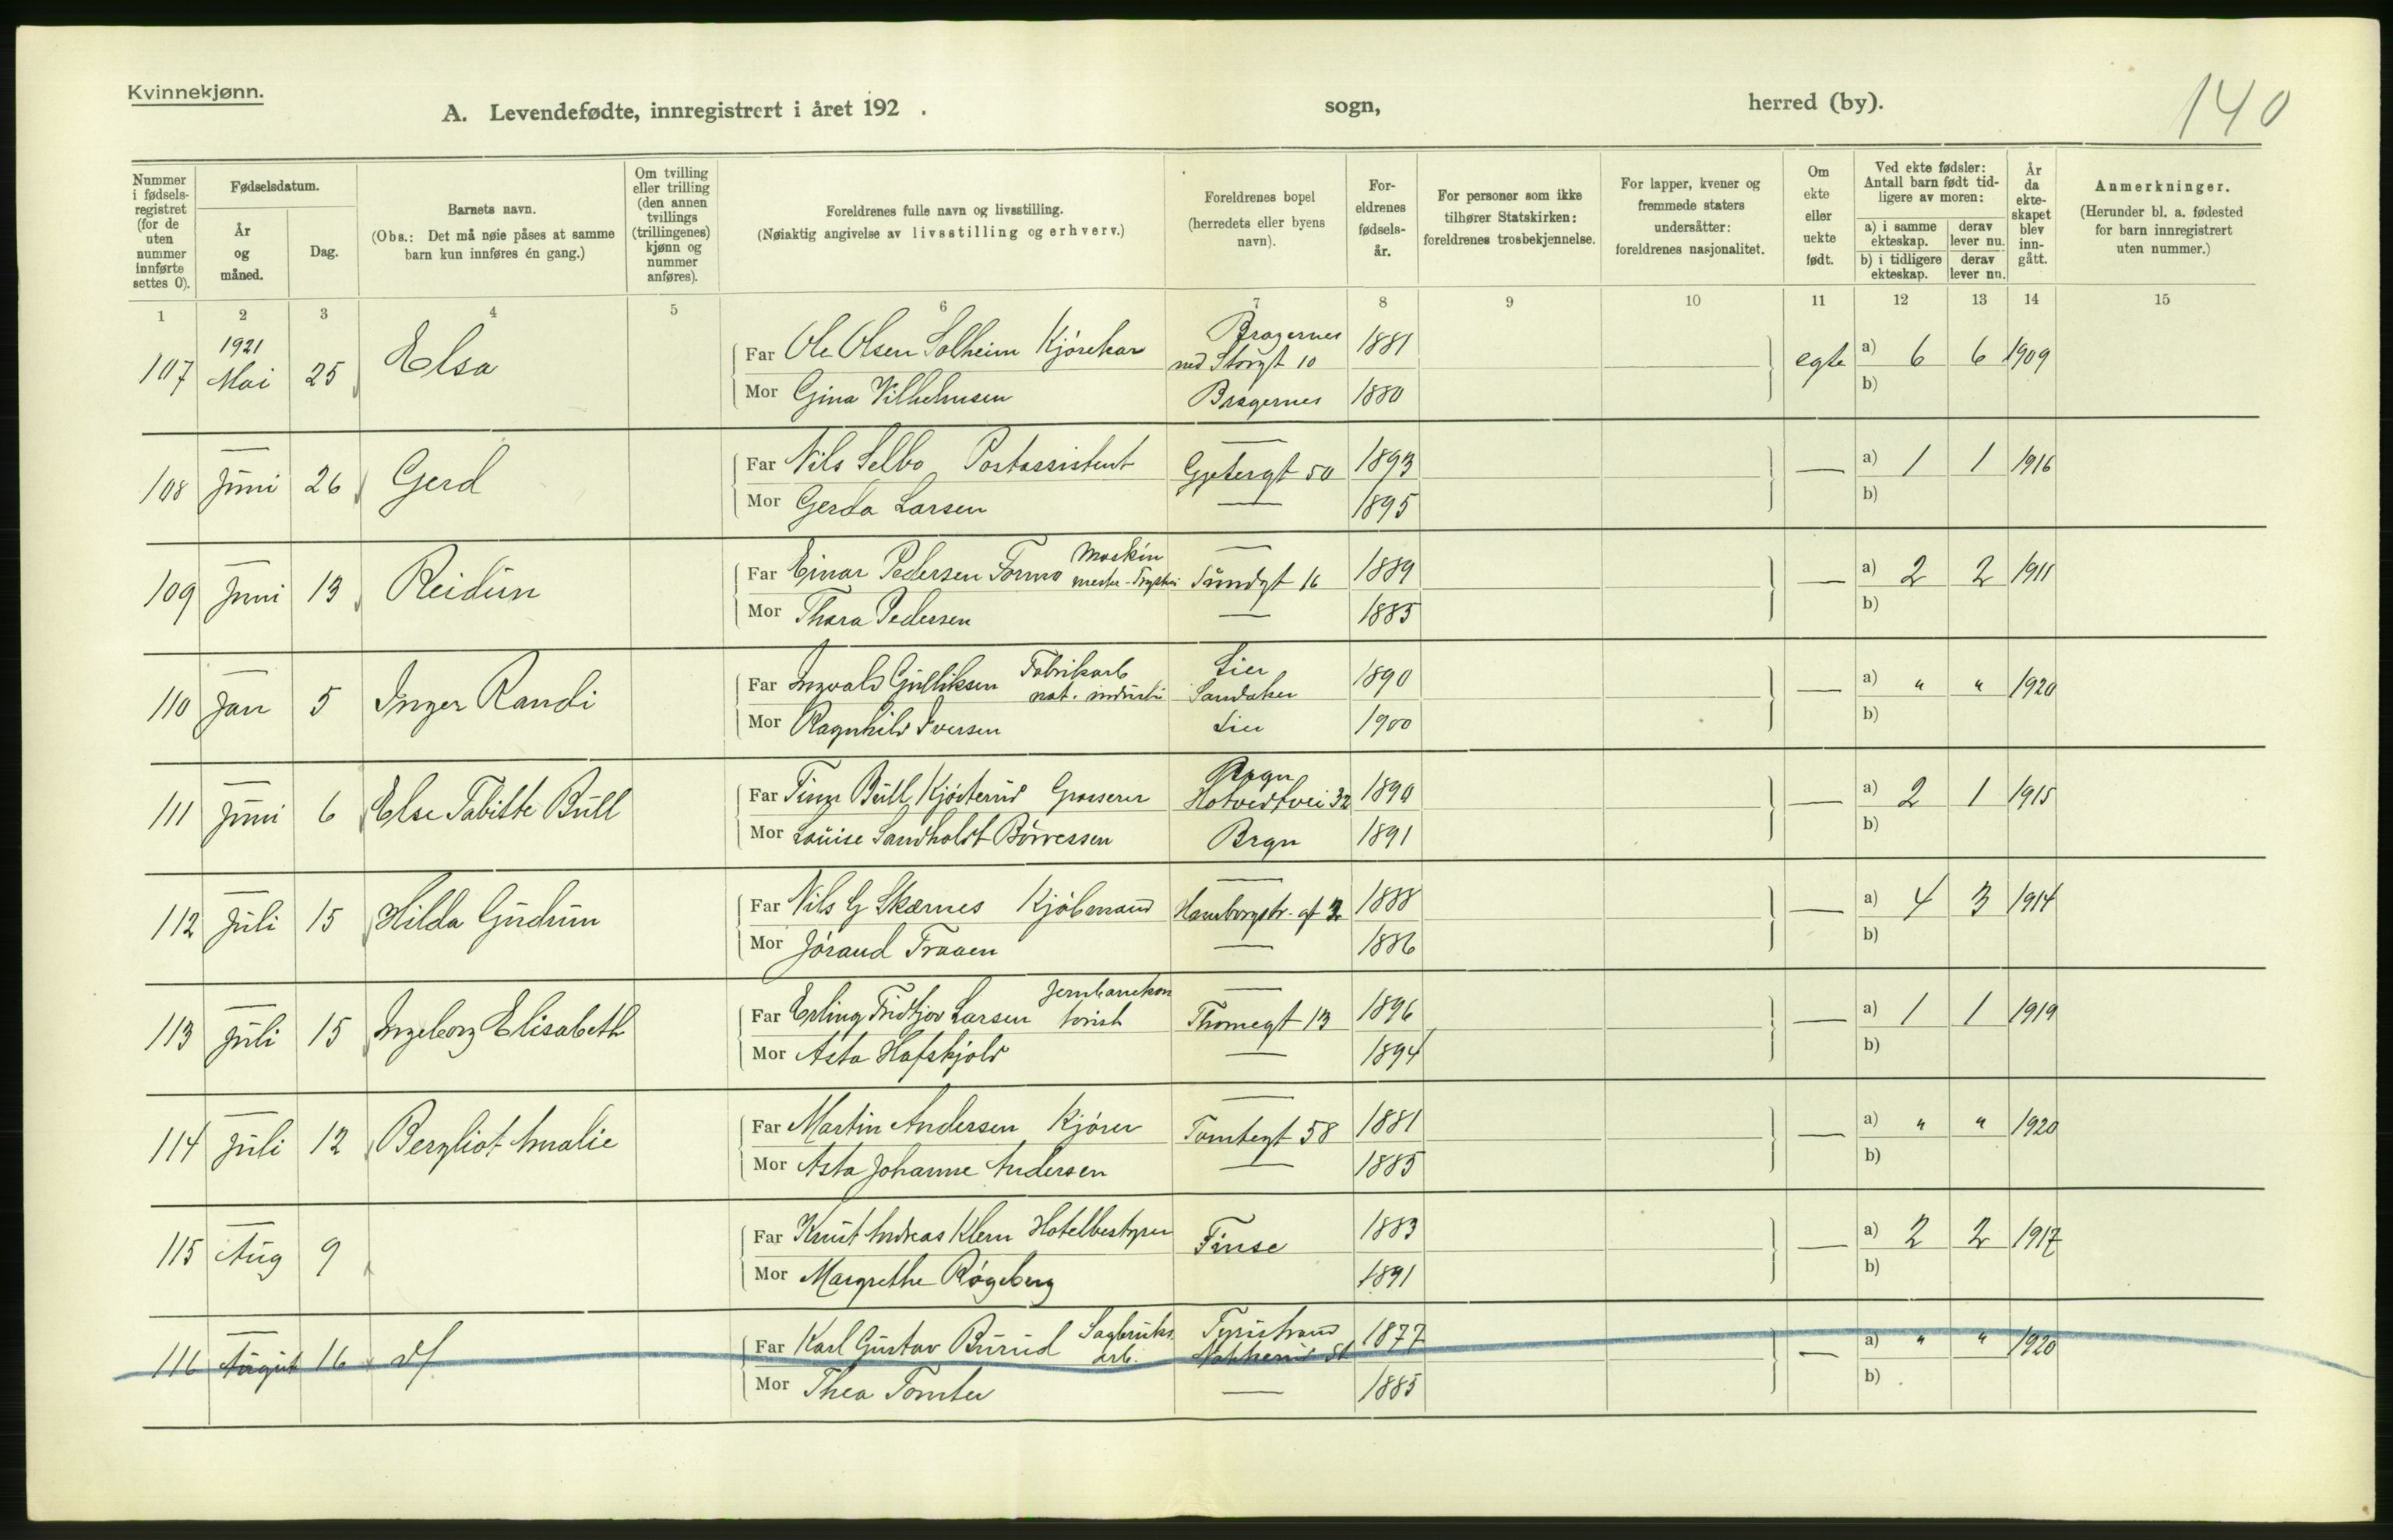 Kvinnekjønn.
A. Levendefødte, innregistrert i året 192 . sogn, herred (by).
140
Nummer i fødselsregistret (for de uten nummer innførte settes 0).
Fødselsdatum.
År og måned.
Dag.
Barnets navn.
(Obs.: Det må nøie påses at samme barn kun innføres én gang.)
Om tvilling eller trilling (den annen tvillings (trillingenes) kjønn og nummer anføres).
Foreldrenes fulle navn og livsstilling.
(Nøiaktig angivelse av livsstilling og erhverv.)
Foreldrenes bopel (herredets eller byens navn).
For-eldrenes fødsels-år.
For personer som ikke tilhører Statskirken: foreldrenes trosbekjennelse.
For lapper, kvener og fremmede staters undersåtter: foreldrenes nasjonalitet.
Om ekte eller uekte født.
Ved ekte fødsler: Antall barn født tid-ligere av moren:
a) i samme ekteskap. derav lever nu.
b) i tidligere ekteskap. derav lever nu.
År da ekte-skapet blev inn-gått.
Anmerkninger.
(Herunder bl. a. fødested for barn innregistrert uten nummer.)
1 2 3 4 5 6 7 8 9 10 11 12 13 14 15
1921 Bragernes
107 Mai 25 Elsa Far Ole Olsen Solheim Kjørekar ned Storgt 10 1881 egte a) 6 6 1909
Mor Gina Vilhelmsen Bragernes 1880 b)
108 Juni 26 Gerd Far Nils Selbo Postassistent Gjetergt 50 1893 — a) 1 1 1916
Mor Gerda Larsen — 1895 b)
109 Juni 13 Reidun Far Einar Pedersen Formo Maskin mester Sundgt 16 1889 — a) 2 2 1911
Mor Thora Pedersen — 1885 b)
110 Jan 5 Inger Randi Far Ingvald Gulliksen Fabrikarb Lier 1890 — a) " " 1920
Mor Ragnhild Iversen Lier 1900 b)
111 Juni 6 Else Tabitte Bull Far Finn Bull Kjøsterud Grosserer Brgn Hotvedtvei 32 1890 — a) 2 1 1915
Mor Louise Sandholdt Børresen Brgn 1891 b)
112 Juli 15 Hilda Gudrun Far Nils G Skarnes Kjøbmand Hamborgstr. gt 1888 — a) 4 3 1914
Mor Jórand Traaen — 1886 b)
113 Juli 15 Ingeborg Elisabeth Far Erling Fridtjov Larsen Jernbanekon torist Thomegt 13 1896 — a) 1 1 1919
Mor Asta Hafskjold — 1894 b)
114 Juli 12 Bergliot Amalie Far Martin Andersen Kjører Tomtegt 58 1881 — a) " " 1920
Mor Asta Johanne Andersen — 1885 b)
115 Aug 9 Far Knut Andreas Klem Hotelbestyrer Finse 1883 — a) 2 2 1917
Mor Margrethe Røgeberg 1891 b)
116 August 16 Far Karl Gustav Burud Sagbruks arb. Tyristrand Nakkerud St 1877 — a) " " 1920
Mor Thea Tomter — 1885 b)